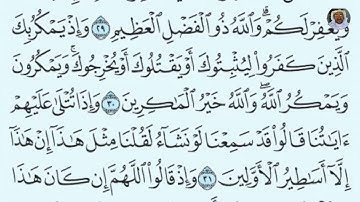 وَيَغْفِرْ لَكُمْ ۗ وَاللَّهُ ذُو الْفَضْلِ الْعَظِيمِ ٢٩ وَإِذْ يَمْكُرُ بِكَ
الَّذِينَ كَفَرُوا لِيُثْبِتُوكَ أَوْ يَقْتُلُوكَ أَوْ يُخْرِجُوكَ ۚ وَيَمْكُرُونَ
وَيَمْكُرُ اللَّهُ ۖ وَاللَّهُ خَيْرُ الْمَاكِرِينَ ٣٠ وَإِذَا تُتْلَىٰ عَلَيْهِمْ
ءَايَاتُنَا قَالُوا قَدْ سَمِعْنَا لَوْ نَشَاءُ لَقُلْنَا مِثْلَ هَٰذَا إِنْ هَٰذَا
إِلَّا أَسَاطِيرُ الْأَوَّلِينَ ٣١ وَإِذْ قَالُوا اللَّهُمَّ إِنْ كَانَ هَٰذَا